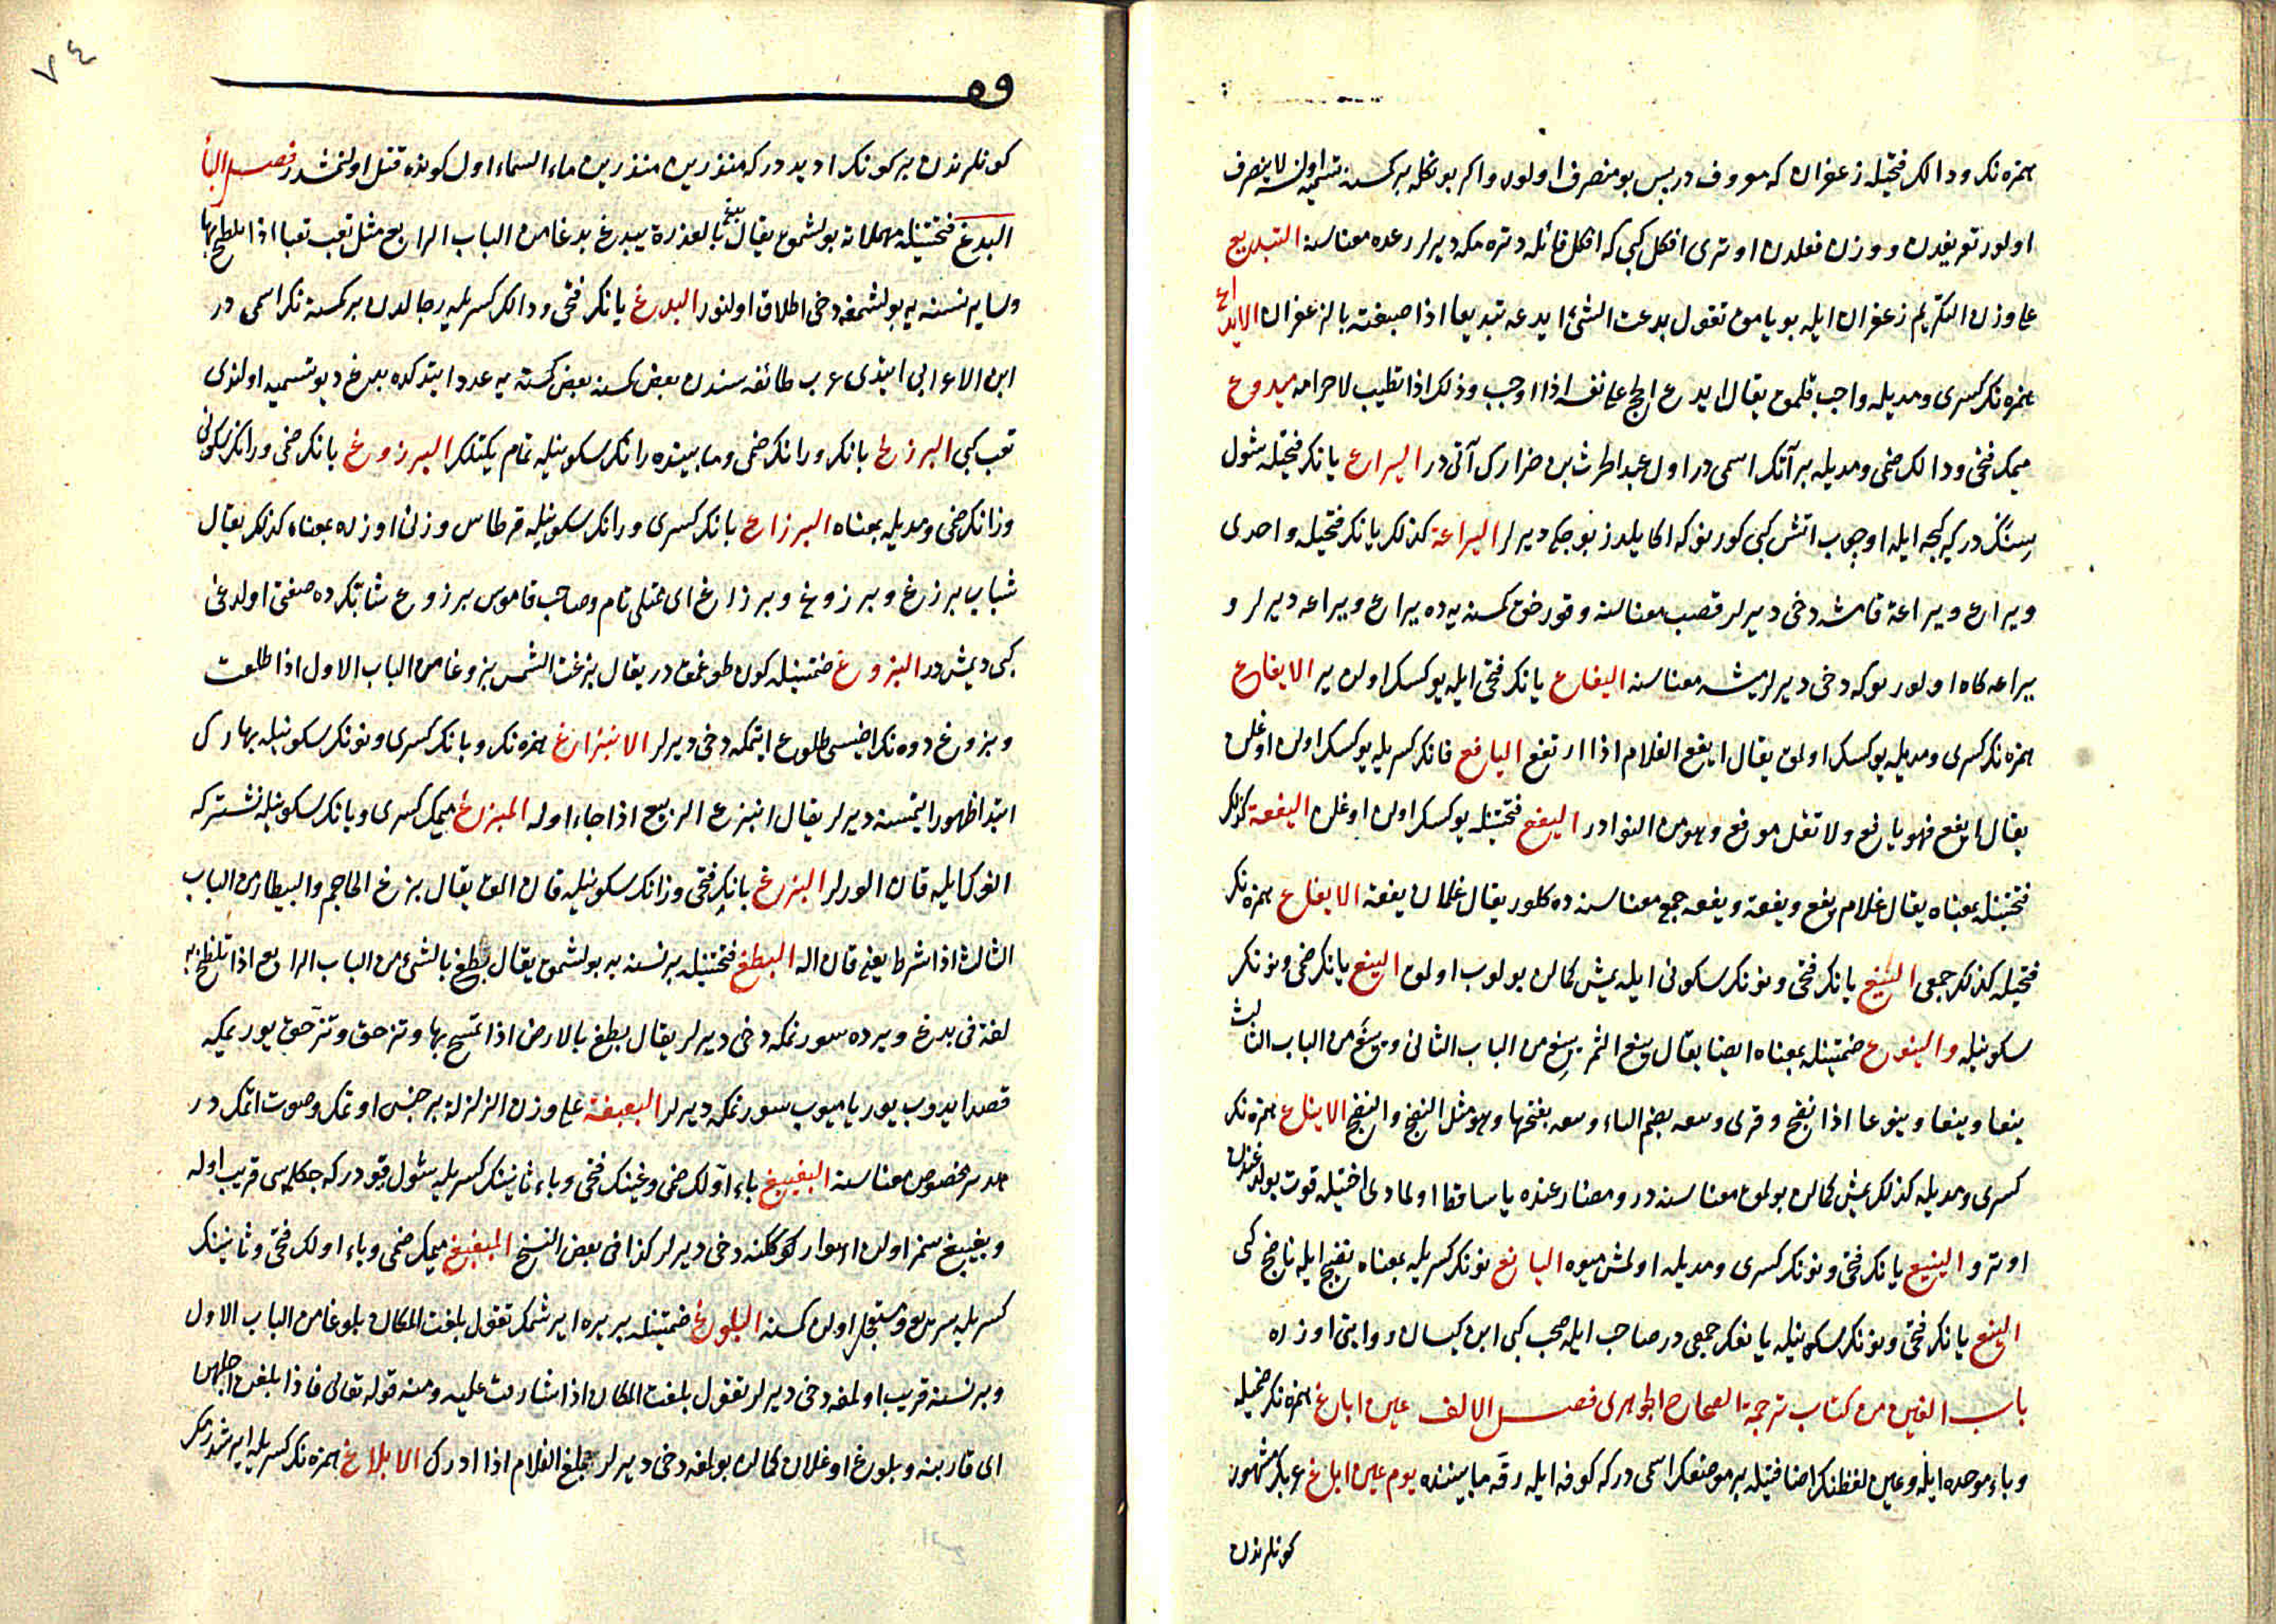 همزه نك ودالك فتحيله زعفران كه معروف در پس بو منصرف اولور واكر بونكله بر كمسنه تسميه اولنسه لا ينصرف
اولور تعريفدن ووزن فعلدن اوترى افكل كبى كه افكل قائله دتره مكه ديرلر رعده معناسنه التبديع
على وزن التكريم زعفران ايله بويامق تقول يدعت الشئ ايدعه تيديعا اذا صبغته بالزعفران الايداع
همزه نك كسرى ومديله واجب قلمق يقال ايدع الحج على نفسه اذا اوجب وذلك اذا تطيب لاحرامه ميدوع
ميمك فتحى ودالك ضمى ومديله بر آتك اسمى در اول عبد الحرث بن ضرارك آتى در اليراع يانك فتحيله شول
سنكدر كيجه ايله اوچوب اتش كبى كورينور كه اكا يلدز بوجكى ديرلر اليراعة كذلك يانك فتحيله واحدى
ويراع ويراعة قامشه دخى ديرلر قصب معناسنه وقورخق كمسنه يه ده يراع ويراعه ديرلر و
يراعه كاه اولور بوكه دخى ديرلر ميشه معناسنه اليفاع يانك فتحى ايله يوكسك اولان ير الايفاع
همزه نك كسرى ومديله يوكسك اولمق يقال ايفع الغلام اذا ارتفع اليافع فانك كسريله يوكسك اولان اوغلان
يقال ايفع فهو يافع ولا تقل موفع وهو من النوادر اليفع فتحتينله يوكسك اولان اوغلان اليفعة كذلك
فتحتينله بمعناه يقال غلام يفع ويفعة ويفعه جمع معناسنه ده كلور يقال غلمان يفعة الايفاع همزه نك
فتحيله كذلك جمعى الينع يانك فتحى ونونك سكونى ايله يمش كمالن بولوب اولمق الينع يانك ضمى ونونك
سكونيله والينوع ضمتينله بمعناه ايضا يقال ينع الثمر يينع من الباب الثانى وينع من الباب الثالث
ينعا وينعا وينوعا اذا نضج وقرى وينعه بضم الياء وينعه بفتحها وهو مثل النضج والنضج الايناع همزه نك
كسرى ومديله كذلك يمش كمالن بولمق معناسنه در ومضارعنده يا ساقط اولمادى اختيله قوت بولدوغندن
اوترو الينيع يانك فتحى ونونك كسرى ومديله اولمش ميوه اليانع نونك كسريله بمعناه نضيج ايله ناضج كبى
الينع يانك فتحى ونونك سكونيله يانعك جمعى در صاحب ايله صحب كبى ابن كيسان روايتى اوزره
باب الغين من كتاب ترجمة الصحاح الجوهرى فصل الالف عين اباغ همزه نك ضميله
وباء موحده ايله وعين لفظنك اضافتيله بر موضعك اسمى در كه كوفه ايله رقه مابيننده يوم عين اباغ عربك مشهور
كونلرندن
كونلرندن بر كونك ادیدر كه منذرين منذرين ماء السماء اول كونده قتل اولنمشدر فصل الباء
البدغ فتحتينله مهملات بولشمق يقال بدغ بالعذرة يبدغ بدغا من الباب الرابع مثل تعب تعبا اذا تلطخ بها
وساير نسنه يه بولشمغه دخى اطلاق اولنور البدغ بانك فتحى ودالك كسريله رجالدن بر كمسنه نك اسمى در
ابن الاعرابى ايتدى عرب طائفه سندن بعض كمسنه بعض كمسنه يه عدد ايتدكده بدغ ديو تسميه اولندى
تعب كبى البرزغ بانك ورانك ضمى ومابينده رانك سكونيله تمام يكتلك البرزوغ بانك ضمى ورانك سكونى
وزانك ضمى ومديله بمعناه البرزاغ بانك كسرى ورانك سكونيله قرطاس وزنى اوزره بمعناه كذلك يقال
شباب برزغ وبرزوغ وبرزاغ اى ممتلى تام وصاحب قاموس برزوغ شابك ده صفتى اولدغى
كبى ديمش در البزوغ ضمتينله كون طوغمق در يقال بزغت الشمس بزوغا من الباب الاول اذا طلعت
وبزوغ دوه نك اضيسى طلوع ايتمكه دخى ديرلر الابتزاغ همزه نك وبانك كسرى ونونك سكونيله بهارك
ابتدا ظهور ايتمسنه ديرلر يقال ابتزغ الربيع اذا جاء اوله المبزغ ميمك كسرى وبانك سكونيله نشتر كه
انوكايله قان الورلر البزغ بانك فتحى وزانك سكونيله قان المق يقال بزغ الحاجم والبيطار من الباب
الثالث اذا شرط يعنى قان اله البطغ فتحتينله بر نسنه يه بولشمق يقال بطغ بالشئ من الباب الرابع اذا تلطخ به
لغة فى بدغ ويرده سورنمكه دخى ديرلر يقال بطغ بالارض اذا تمسح بها وتزحف وتزحف يوريمكه
قصد ايدوب يوريا ميوب سورنمكه ديرلر البغبغة على وزن الزلزلة بر جنس اوتمك وصوت اتمك در
هدير مخصوص معناسنه البغيبغ باء اولك ضمى وغينك فتحى وباء ثانينك كسريله شول قيودر كه جكله سى قريب اوله
وبغيبغ سمز اولان اهوارككنه دخى ديرلر كذا فى بعض النسخ المبغبغ ميمك ضمى وباء اولك فتحى وثانينك
كسريله سريع ومستعجل اولان كمسنه البلوغ ضمتينله بر يره ايرشمك تقول بلغت المكان بلوغا من الباب الاول
وبر نسنه قريب اولمغه دخى ديرلر تقول بلغت المكان اذا شارفت عليه ومنه قوله تعالى فاذا بلغن اجلهن
اى قاربنه وبلوغ اوغلان كمالن بولمغه دخى ديرلر بلغ الغلام اذا ادرك الابلاغ همزه نك كسريله ايرشدرمك
٧٤